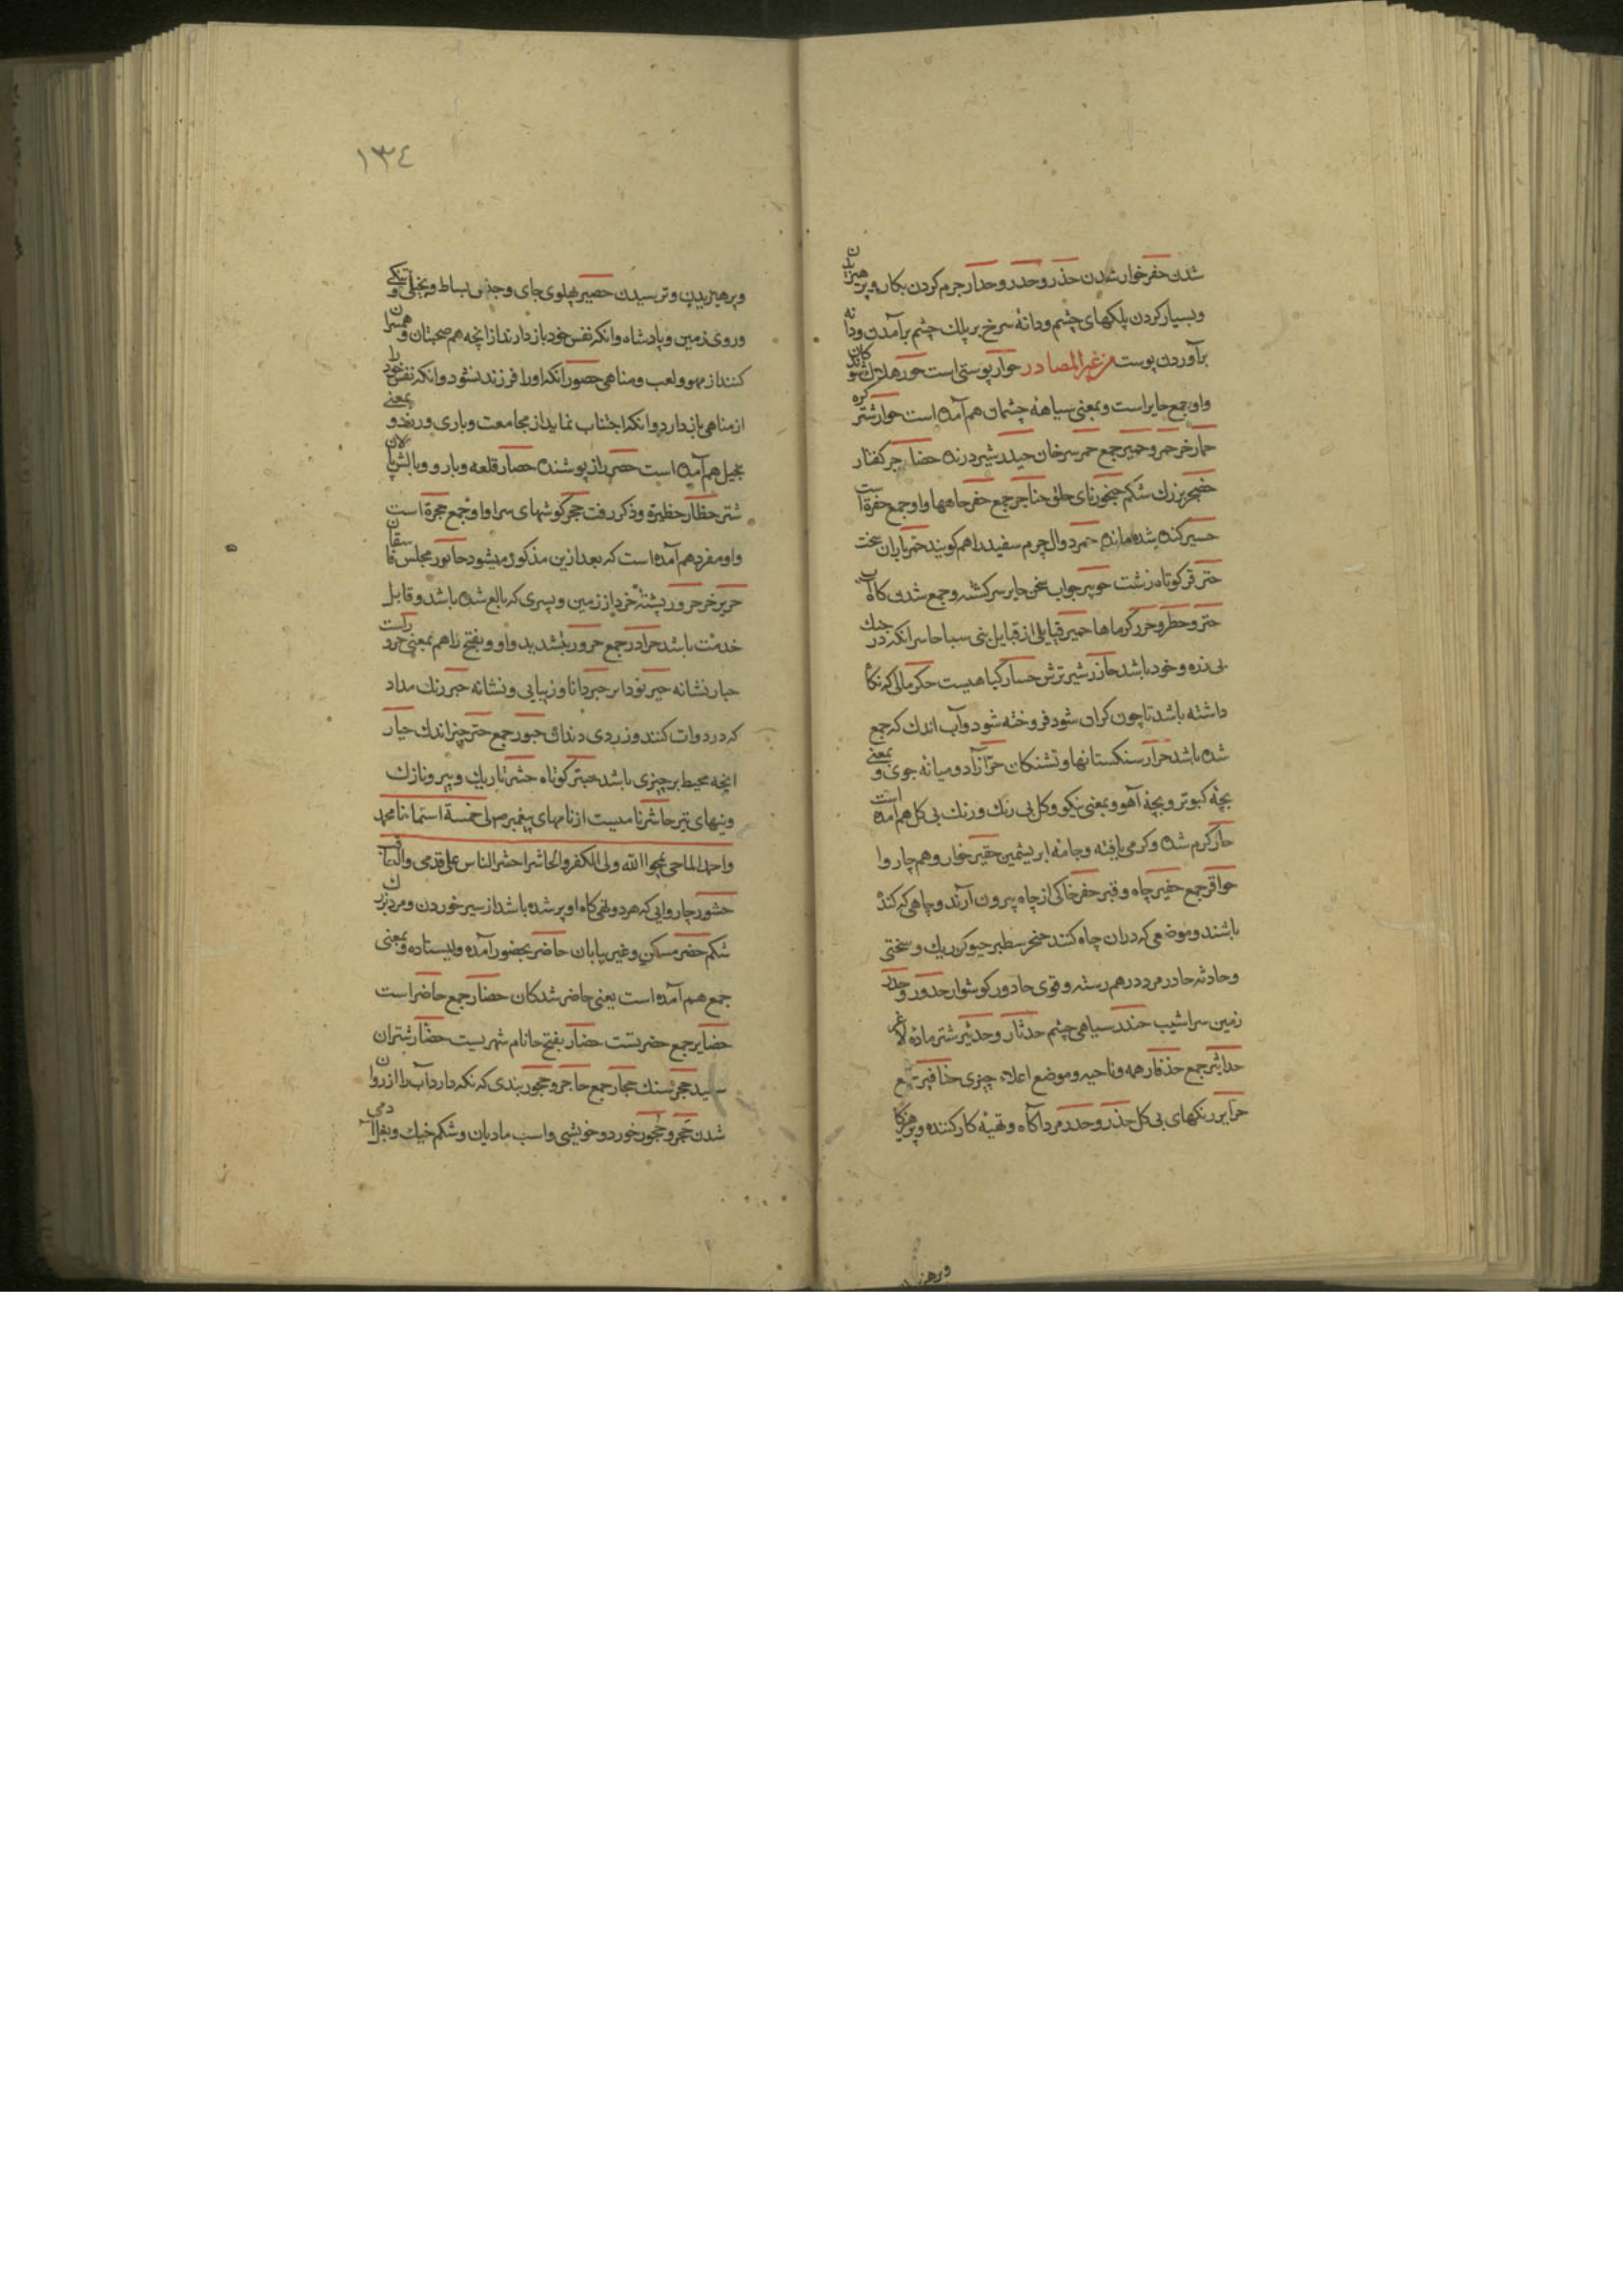 شدن حفر خوار شدن حذر وحدر وحدار جرم کردن بکار وپرهیزیدن
وبسیار کردن پلکهای چشم ودانۀ سرخ بر پلک چشم برآمدن ودانه
برآوردن پوست من غیر المصادر حوار پوستی است حور هلاک شوندکان
واو جمع حایر است وبمعنی سیاهۀ چشمان هم آمده است حوار شتر کره
حمار خر حمر وحمیر جمع حمر سرخان حیدر شیر درنده حضاجر کفتار
حضجر بزرك شکم حنجور نای حلق حناجر جمع حفر چاهها واو جمع حفرة است
حسیر کنده شده مانده حمر دوال چرم سفید را هم کویند حتر باران سخت
کوتاه زشت حویر جواب سخن حایر سرکشته وجمع شدن کاه آب
کرماها حمیر قبایلی از قبایل بنی سبا حاسر انکه در جنك
بی زره وخود باشد حازر شیر ترش حسار کیاهیست حکر مالی که نکاه
داشته باشد تا چون کران شود فروخته شود وآب اندك که جمع
شده باشد حرار سنکستانها وتشنکان حر آزاد ومیانه جوی وبمعنی
بچۀ کبوتر وبچۀ آهو وبمعنی نیکو وکل بی رنك ورنك بی کل هم آمده است
حار کرم شده وکرمی یافته وجامۀ ابریشمین حقیر خوار وهم چاروا
حوافر جمع حفیر چاه وقبر حفر خاکی از چاه بیرون آرند وچاهی که کنده
باشند وموضعی که دران چاه کنند سطبر ریك وسختی
وحادثه حادر مرد درهم رسته وقوی حادور کوشوار حدور وحدر
زمین سراشیب حندر سیاهی چشم حدثار وحدثیر شتر مادۀ لاغر
حداثیر جمع حذفار همه وناحیه وموضع اعلاء چیزی حذافیر جمع
حرایر رنکهای بی کل حذر وحدر مرد آکاه وتهیۀ کار کننده وپرهیزکار
وپرهیز
١٣٤
وپرهیزیدن وترسیدن حصیر پهلوی جای وجنس بساط وبخیلی وتنکی
وروی زمین وپادشاه وانکه نفس خود باز دارند از انچه هم صحبتان وهمسران
کنند از لهو ولعب ومناهی حصور آنکه اورا فرزند نشود وانکه نفس خود را
از مناهی باز دارد وانکه اجتناب نماید از مجامعت وباری ورزد وبمعنی
بخیل هم آمده است حصر راز پوشنده حصار قلعه وبارو وبالش پالان
شتر حظار حظیرة وذکر رفت حجر کوشهای سرا واو جمع حجرة است
واو مفرد هم آمده است که بعد ازین مذکور میشود حانور مجلس فاسقان
حریر خر حرور پشتۀ خرد از زمین وپسری که بالغ شده باشد وقابل
خدمت باشد حرادر جمع حرور بتشدید واو وبفتح زا هم بمعنی حرور است
حبار نشانه حیر نودار حبر دانا وزیبایی ونشانه حبر رنك مداد
که در دوات کنند وزردی دندان حبور جمع حتر چیز اندك حیار
انچه محیط بر چیزی باشد حبتر کوتاه حشر تاریك وپیر ونازك
وپنهای تیر حاشر نامیست از نامهای پیغمبر م لی خمسة اسماء انا محمد
واحمد والماحی یمحوا الله ولی الکفر والحاشر احشر الناس علی قدمی والعاقب
حشور چاروایی که هر دو تهی کاه او پر شده باشد از سیر خوردن ومرد بزرك
شکم حضر مسکن وغیر بیابان حاضر بحضور آمده وایستاده وبمعنی
جمع هم آمده است یعنی حاضر شدکان حضار جمع حاضر است
حضایر جمع حضرتست حضار بفتح حا نام شهریست حضار شتران
سپید حجر سنك حجار جمع حاجر وحجور بندی که نکه دارد آب را از روان
شدن حجر وحجور خورد وخویشی واسب مادیان وشکم خیك وبغل آدمی